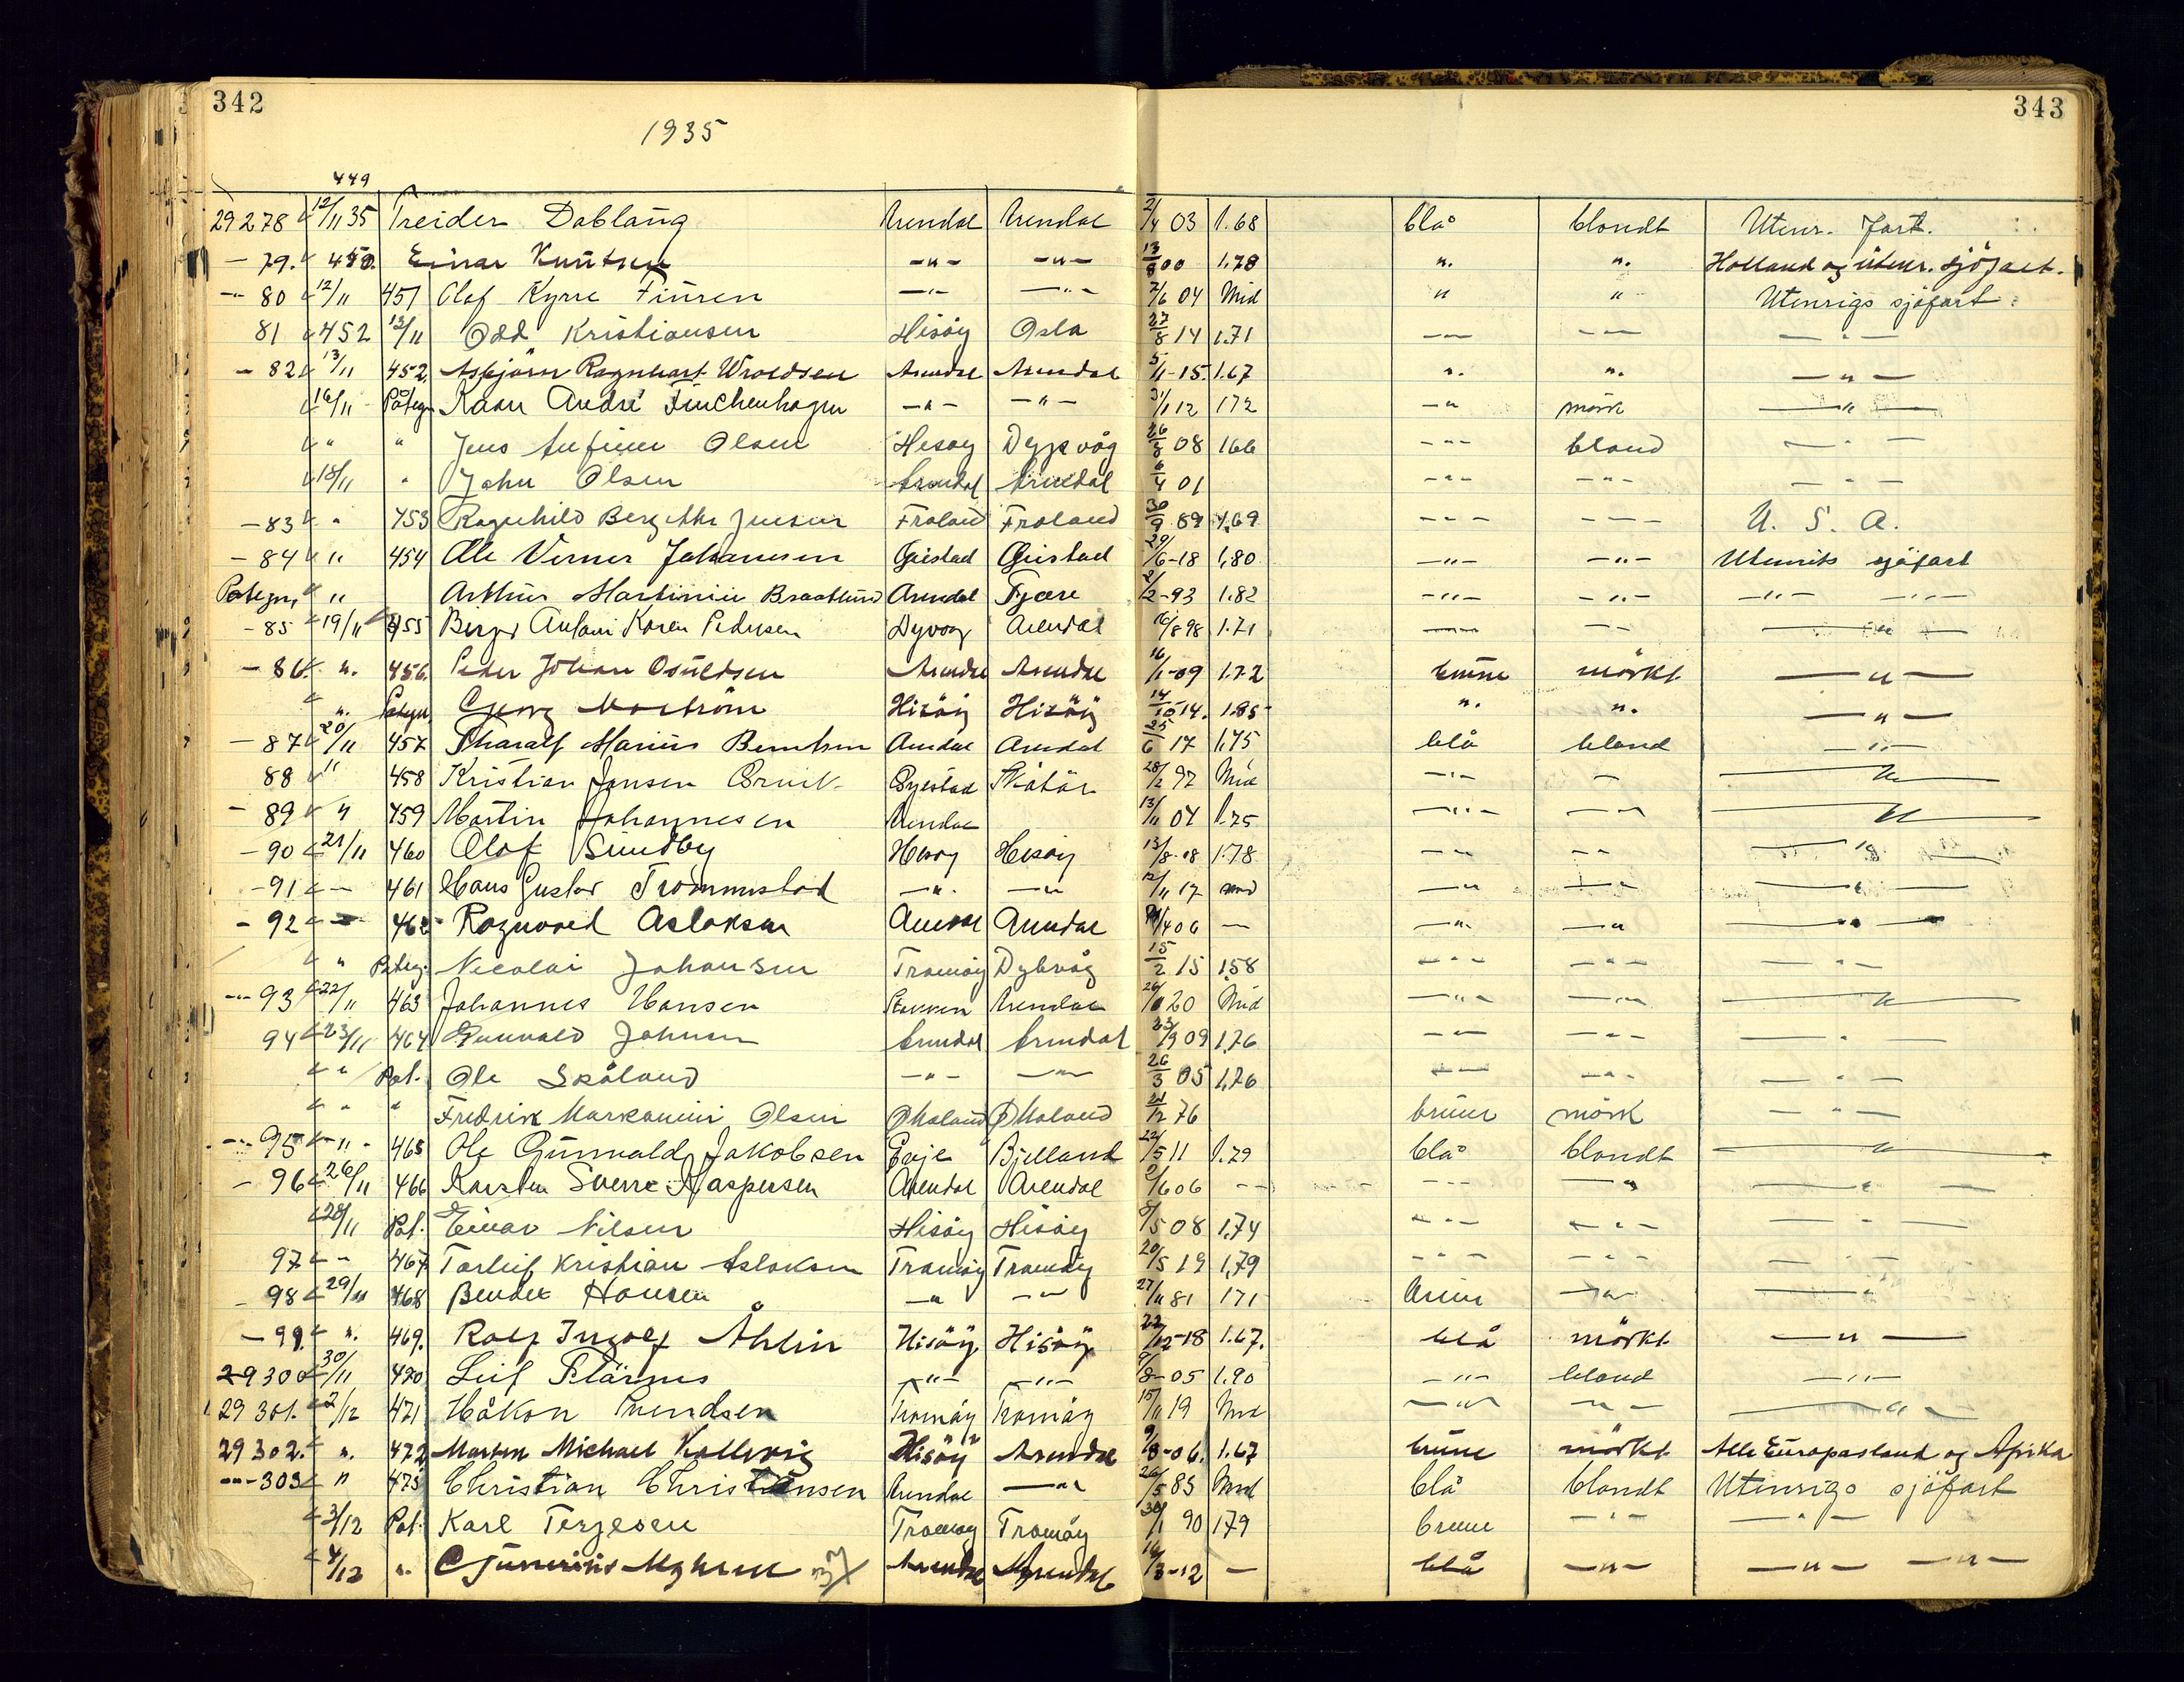 342
343
1935
449
29278 12/11 35 Treider Dablang Arendal Arendal 2/4 03 1.68 blå blondt Utenr. fart.
- 79. 450. Einar Kuntsen -"- -"- 13/8 00 1.78 ". ". Holland og utenr. sjöfart.
-" 80 12/11 451 Olaf Kyrre Finsen -"- -"- 7/6 04 Mid " " Utenrigs sjöfart
81 452 13/11 Odd Kristiansen Hisöy Oslo 27/8 14 1.71 -"- -"- -"-
- 82 13/11 452. Asbjörn Ragnhart Wroldsen Arendal Arendal 5/11-15. 1.67 ". ". -"-
16/11 Påtegn Kaare André Finckenhagen -"- -"- 31/1 12 172 -" mörk -"-
" " Jens Olsen Hesøy Dypvåg 26/8 08 166 -"- blond -"-
18/11 " John Olsen Arendal Arendal 6/4 01 -"- -"- -"-
- 83 " 453 Ragnhild Bergithe Jensen Froland Froland 30/9 89 1.69 -"- -"- U. S. A.
- 84 " 454 Ole Verner Johannesen Öiestad Öiestad 29/6-18 1,80 -"- -"- Utenriks sjöfart
Påtegn, " Arthur Martinius Braatlund Arendal Fjære 2/12-93 1.82 -"- -"- -"- -"-
- 85 19/11 455 Birger Antoni Karen Pedersen Dyvåg Arendal 16/8 98 1.71 -"- -"- -"-
- 86. ". 456. Peder Johan Osuldsen Arendal Arendal 16/1-09 1.72 brune mörkt -"-
". Påtegn. Georg Moström Hisöy Hisöy 14/10 14. 1.85 ". ". -"-
- 87 20/11 457 Tharalf Marius Berntsen Arendal Arendal 25/6 17 1,75 blå blond -"-
88 " 458 Kristian Jensen Öyestad 28/2 97 Mid -"- - -"-
- 89 " 459 Martin Johannesen Arendal 13/11 04 1.75 -"- -"- -"-
- 90 21/11 460 Olaf Sundby Hisøy Hisøy 13/8-08 1.78 -"- -"- -"-
- 91 - 461 Hans Gustav Trommestad -"- -"- 12/11 17 mid -"- -"- -"-
- 92 - 462 Ragnvald Aslaksen Arendal Arendal /4 06 - -"- -"- -"-
" Påteg. Nicolai Johansen Tromöy Dybvåg 15/2 15 1,58 -"- -"- -"-
-"- 93 22/11 463 Johannes Hansen Stokken Arendal 26/10 20 Mid -"- -"- -"-
94 23/11 464 Gunvald Johnsen Arendal Arendal 23/9 09 1,76 -"- -"- -"-
" Pat. Ole Skåland -"- -"- 26/3 05 1,76 -"- -"- -"-
" " Fredrik Olsen Ø Moland Ø Moland 21/12 76 bruner mörk -"-
-"- 95 -"- 465 Ole Gunnvald Jakobsen Evje Bjelland 22/5 11 1.79 blå blondt -"-
- 96 26/11 466 Karsten Sverre Kaspersen Arendal Arendal 9/6 06 -- -"- -"- -"-
28/11 Pat. Einar Nilsen Hisöy Hisöy 8/5 08 1,74 -"- -"- -"-
97 -"- 467 Torleif Kristian Aslaksen Tromöy Tromöy 20/5 19 1,79 -"- -"- -"-
- 98 29/11 468 Hansen -"- -"- 27/11 81 171 brun -"- -"-
- 99. ". 469. Rolf Ingolf Åhlin Hisöy Hisöy 22/12-18 1.67. blå mörkt -"-
29300 30/11 470 Leif Pläsms -"- -"- 9/8-05 1.90 -"- blond -"-
29 301. 2/12 471 Håkon Svendsen Tromöy Tromöy 15/11 19 Mid -"- -"- -"-
29302. ". 472. Morten Michael Kallevig Hisöy Arendal 9/8-06. 1.67 brune mörkt Alle Europasland og Afrika
-"-303 " 473 Christian Christiansen Arendal -"- 26/5 85 Mid blå blondt Utenrigs sjöfart
3/12 Pat: Karl Terjesen Tromøy Tromöy 30/1 90 1.79 brune -"- -"-
4/12 ". Arendal Arendal 16/3-12 - blå -"- -"- -"-